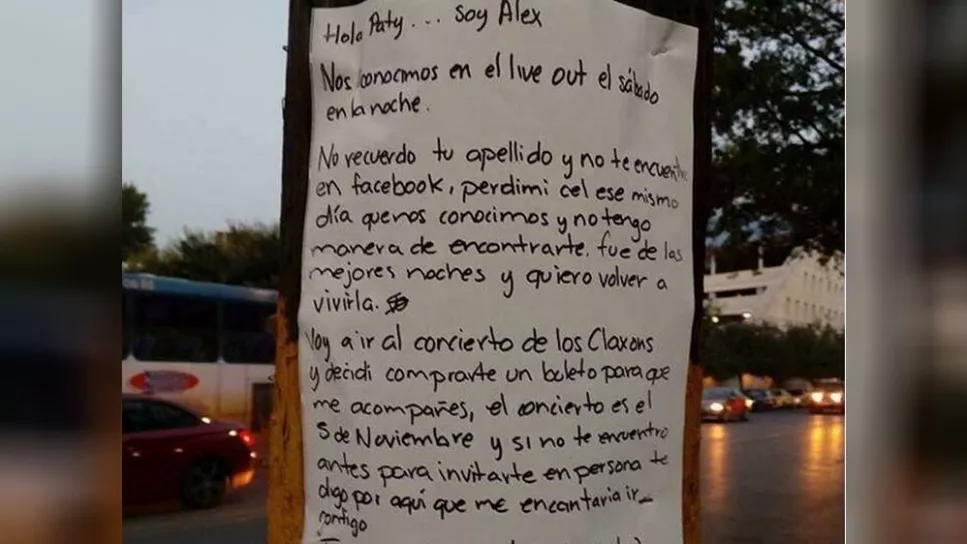 Hola Paty... Soy Alex
Nos conocimos en el live out el sábado
en la noche.
No recuerdo tu apellido y no te encuentre
en facebook, perdimi cel ese mismo
día que nos conocimos y no tengo
manera de encontrarte. fue de las
mejores noches y quiero volver a
vivirla.
Voy a ir al concierto de los Claxons
y decidi comprarte un boleto para que
me acompañes, el concierto es el
5 de Noviembre y si no te encuentro
antes para invitarte en persona te
digo por aquí que me encantaria ir
contigo